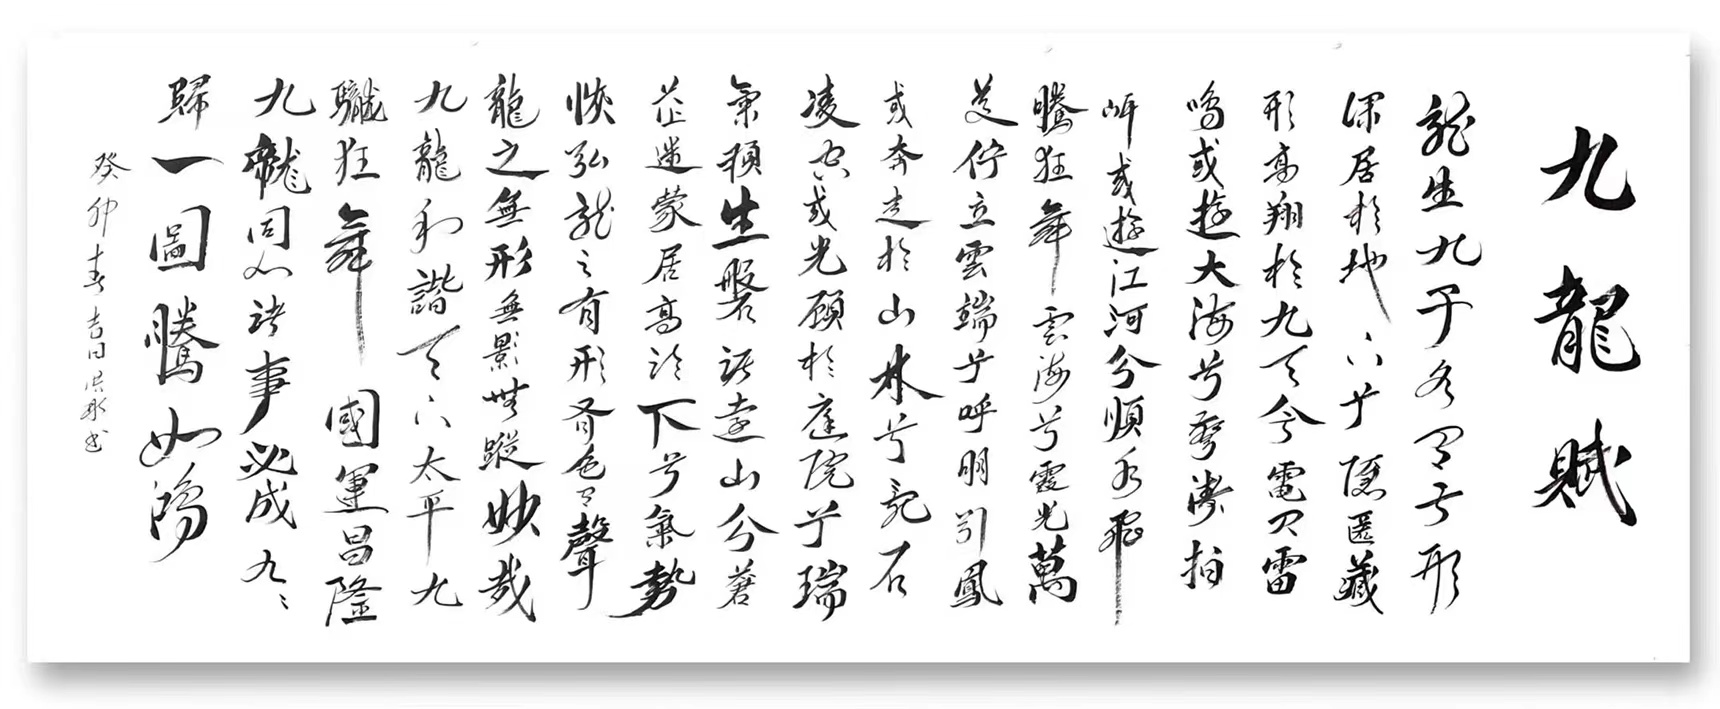 九龍賦
龍生九子各有其形
深居於地下兮隱匿藏
形高翔於九天兮電閃雷
鳴或遊大海兮驚濤拍
岸或遊江河兮順水飛
騰狂舞雲海兮霞光萬
道佇立雲端兮呼朋引鳳
或奔走於山林兮亂石
凌空或光顧於庭院兮瑞
氣頓生磐踞遠山兮蒼
茫迷蒙居高臨下兮氣勢
恢弘龍之有形有色有聲
龍之無形無影無蹤妙哉
九龍和諧天下太平九
龍狂舞國運昌隆
九龍同心諸事必成九九
歸一圖騰如鴻
癸卯春 書